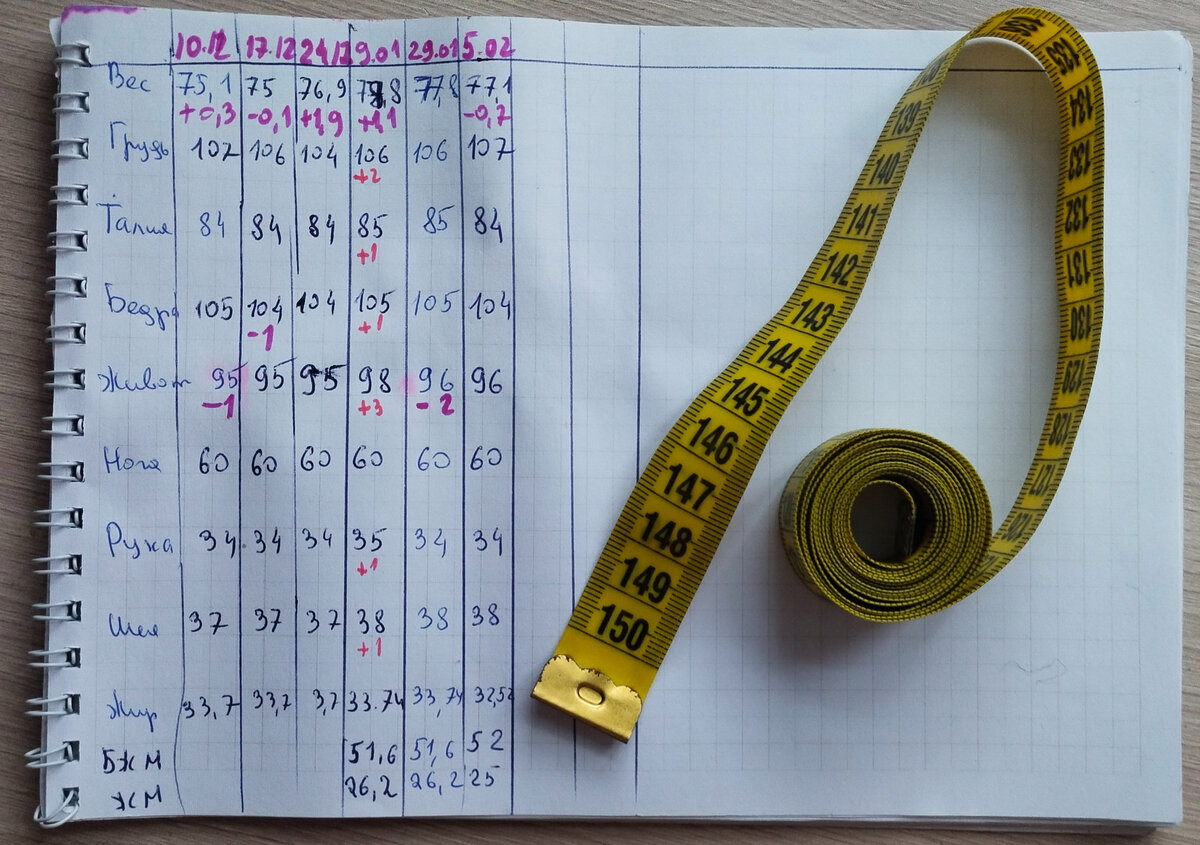 10.12 17.12 24.12 9.01 29.01 5.02
Вес 75,1 75 76,9 77,8 77,1
+0,3 -0,1 +1,9 +1,1 -0,7
Грудь 107 106 104 106 106 107
+2
Талия 84 84 84 85 85 84
+1
Бедра 105 104 104 105 105 104
-1 +1
Живот 95 95 95 98 96 96
-1 +3 -2
Нога 60 60 60 60 60 60
Рука 34 34 34 35 34 34
+1
Шея 37 37 37 38 38 38
+1
Жир 33,7 33,7 3,7 33.74 33,74 32,52
БЖМ 51,6 51,6 52
ЖМ 26,2 26,2 25
139
140
141
142
143
144
145
146
147
148
149
150
135
134
133
132
131
130
129
128
127